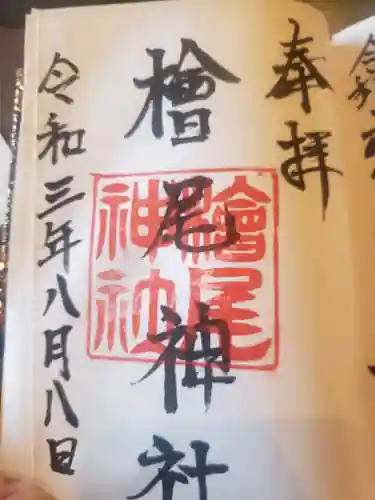 奉拝
檜尾神社
檜尾神社
令和三年八月八日